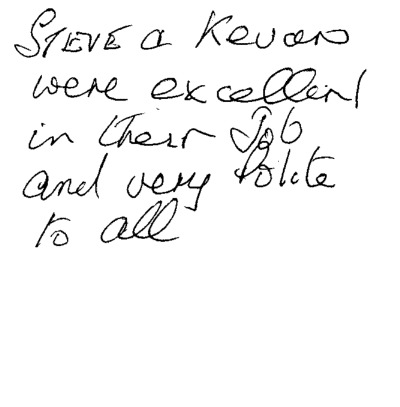 STEVE a Kevan
were excellent
in their Job
and very Polite
to all